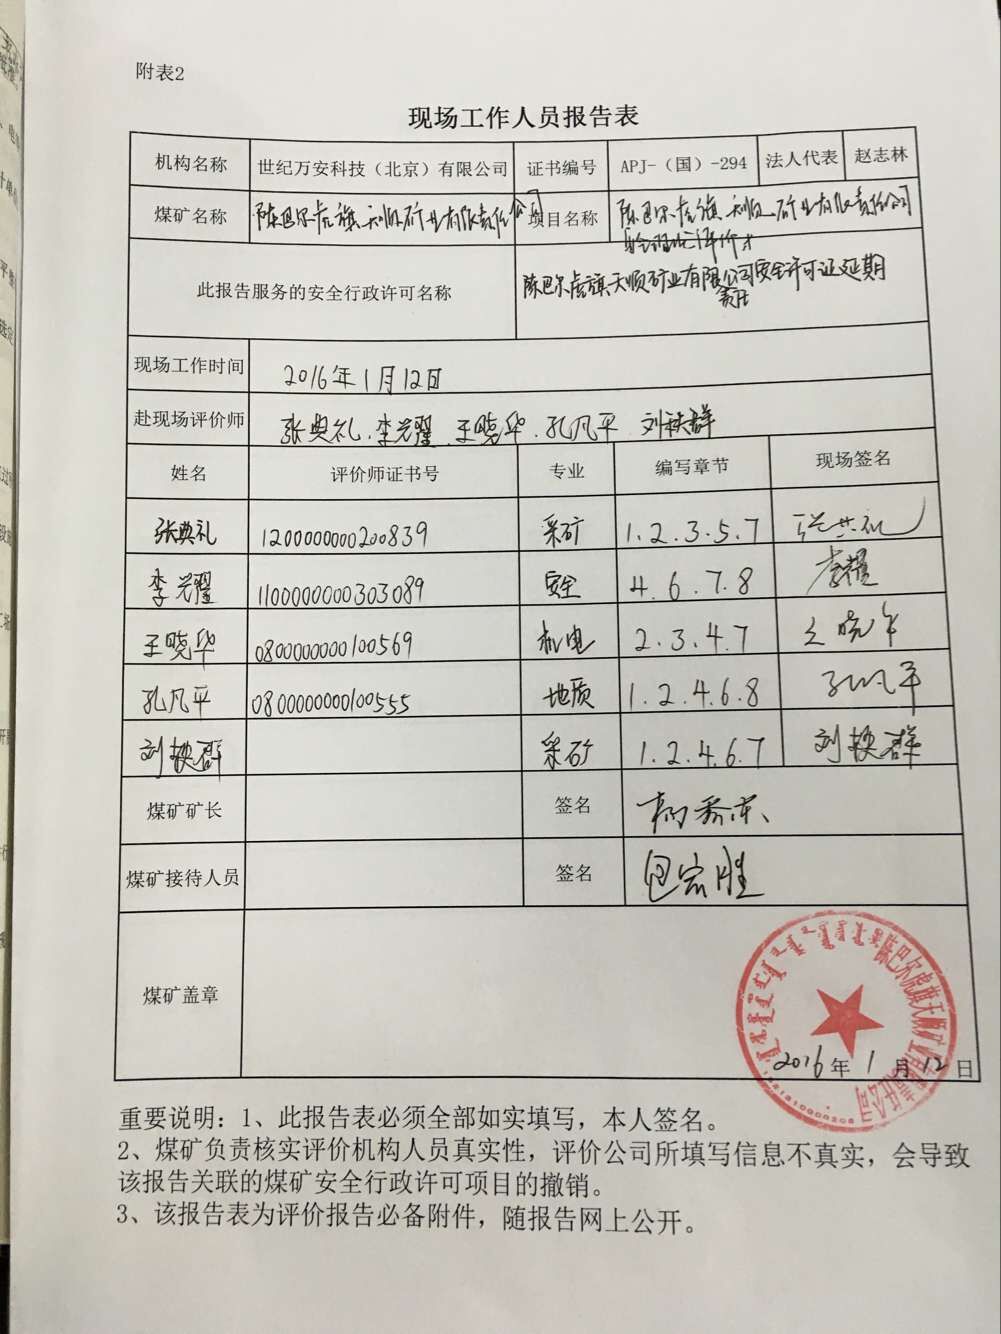 附表2
现场工作人员报告表
机构名称 世纪万安科技（北京）有限公司 证书编号 APJ-（国）-294 法人代表 赵志林
煤矿名称 陈巴尔虎旗天顺矿业有限责任公司 项目名称 陈巴尔虎旗天顺矿业有限责任公司
安全现状评价
此报告服务的安全行政许可名称 陈巴尔虎旗天顺矿业有限公司安全许可证延期
责任
现场工作时间 2016年1月12日
赴现场评价师 张典礼、李光耀、王晓华、孔凡平、刘轶群
姓名 评价师证书号 专业 编写章节 现场签名
张典礼 1200000000200839 采矿 1.2.3.5.7 张典礼
李光耀 1100000000303089 安全 4.6.7.8
王晓华 0800000000100569 机电 2.3.4.7 王晓华
孔凡平 0800000000100555 地质 1.2.4.6.8 孔凡平
刘轶群 采矿 1.2.4.6.7 刘轶群
煤矿矿长 签名
煤矿接待人员 签名 包宏胜
煤矿盖章
陈巴尔虎旗天顺矿业有限责任公司
2016年1月12日
重要说明：1、此报告表必须全部如实填写，本人签名。
2、煤矿负责核实评价机构人员真实性，评价公司所填写信息不真实，会导致
该报告关联的煤矿安全行政许可项目的撤销。
3、该报告表为评价报告必备附件，随报告网上公开。